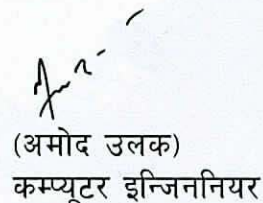 (अमोद उलक)
कम्प्यूटर इन्जिननियर